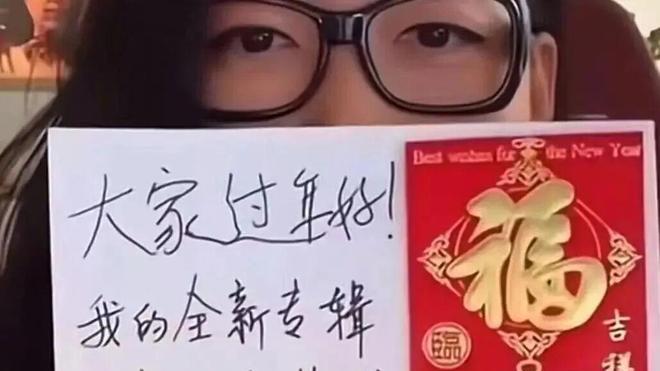 大家过年好!
我的全新专辑
Best wishes for the New Year
福
臨
吉